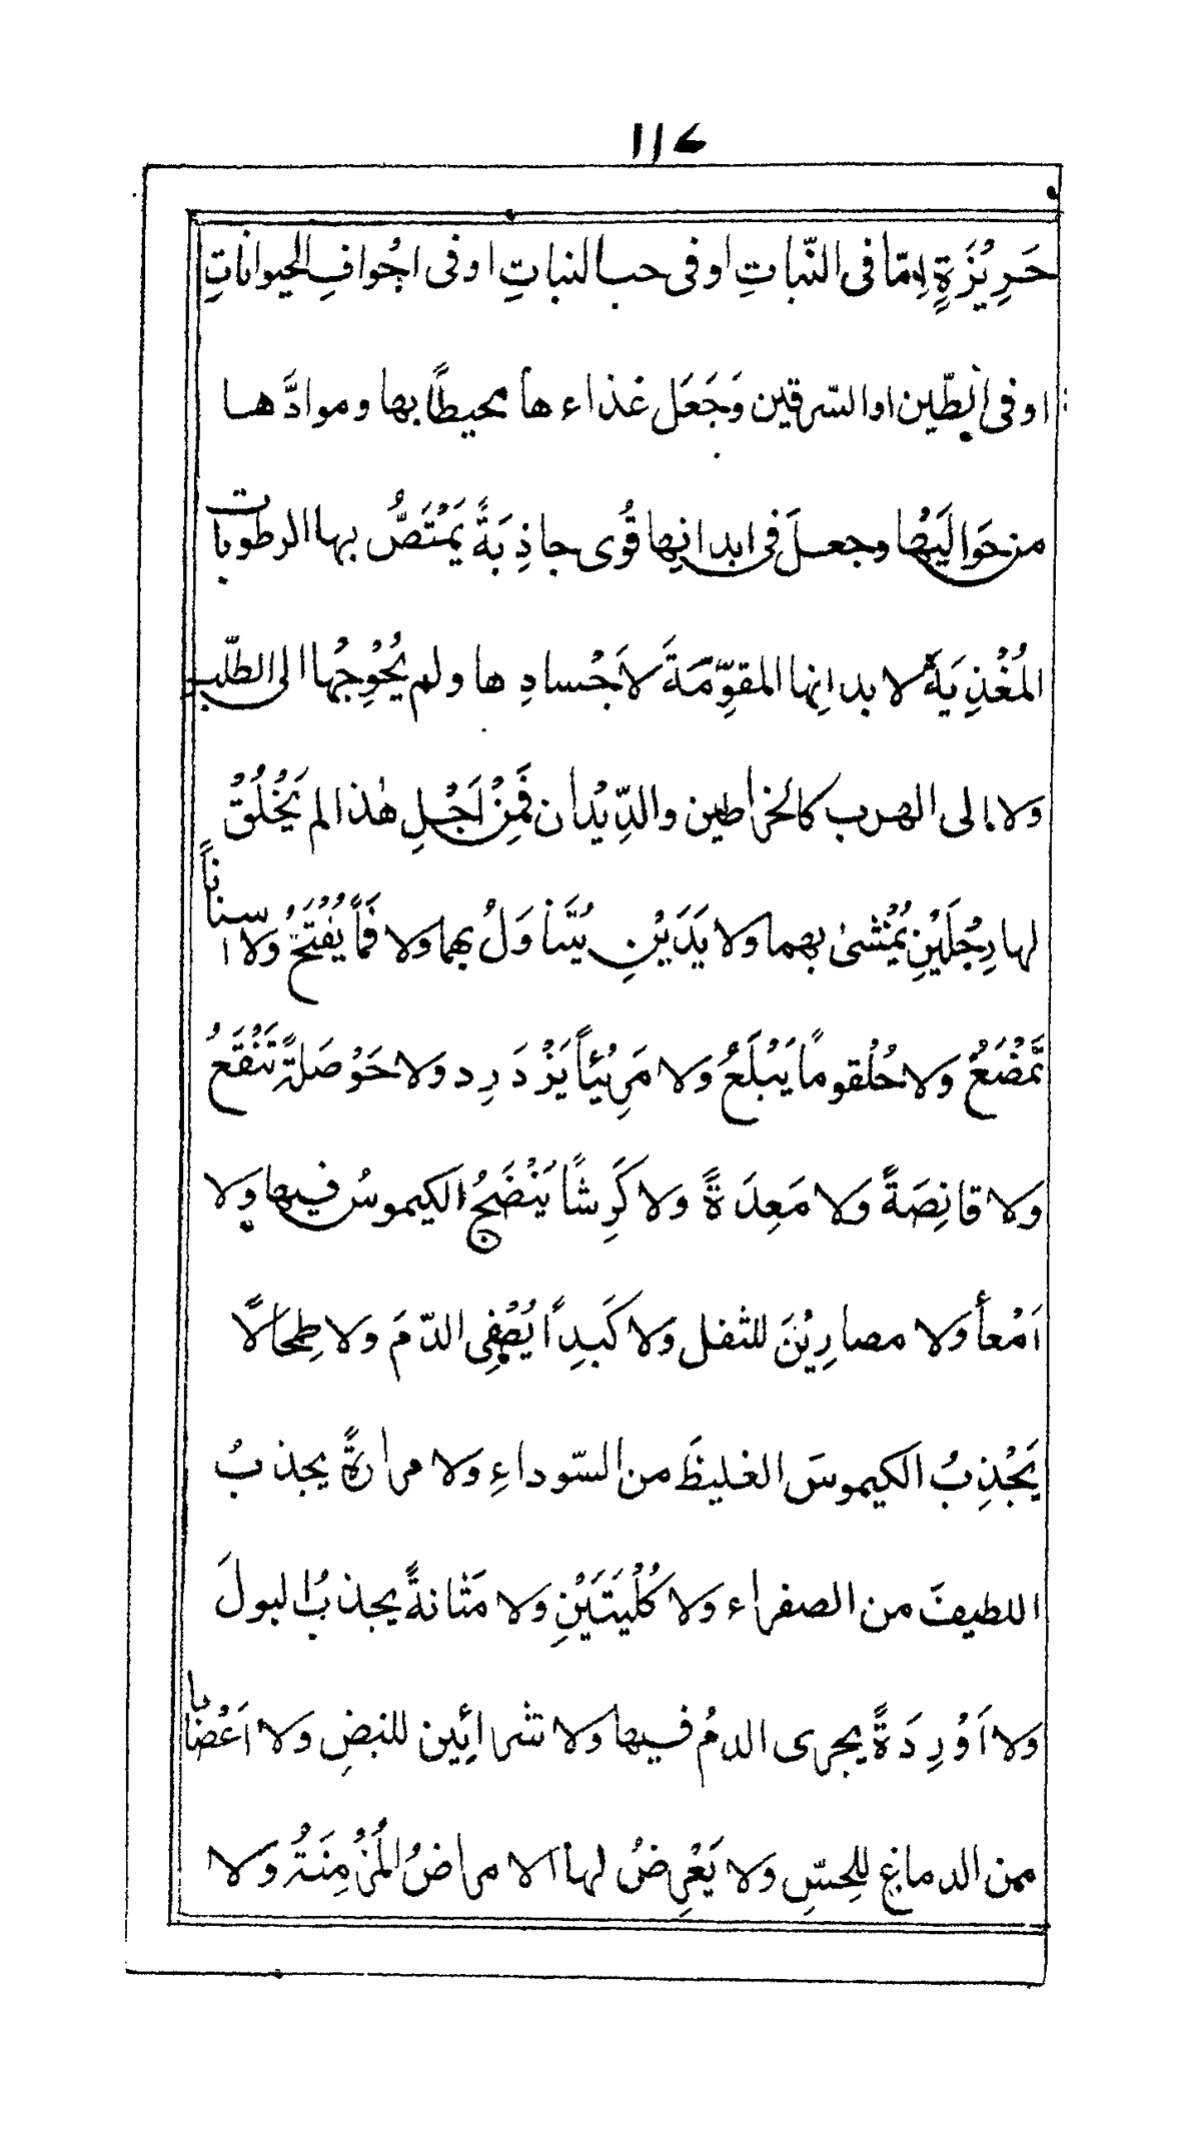 ١١٤
حَرِيْزَةٍ اِمّا فى النّبَاتِ او فى حب النباتِ او فى اجْوافِ الحيواناتِ
او فى الطّين او السّرقين وَجَعَل غذاءها محيطاً بها وموادَّها
من حَوَالَيْها وجعلَ فى ابدانِها قُوى جاذِبَةً يَمْتَصُّ بها الرطوبات
المُغْذِيَةَ لابدانِها المقوِّمَةَ لاَجْسادِها ولم يُحْوِجْها الى الطّلب
ولا الى الهرب كالخراطين والدِّيْدان فَمِنْ اَجْلِ هٰذا لم يَخْلُقْ
لها رِجْلَيْنِ يُمْشىٰ بهما ولا يَدَيْنِ يُتَناوَلُ بهما ولا فَماً يُفْتَحُ ولا اسناناً
تَمْضَغُ ولا حُلْقوماً يَبْلَعُ ولا مَرِيْئاً يَزْدَرِد ولا حَوْصَلةً تَنْقَعُ
ولا قانِصَةً ولا مَعِدَةً ولا كَرِشاً يَنْضَجُ الكيموسُ فيها ولا
اَمْعأً ولا مصارِيْنَ للثفل ولا كَبِداً يُصْفِى الدّمَ ولا طِحالًا
يَجْذِبُ الكيموسَ الغليظَ من السّوداءِ ولا مرارةً يجذبُ
اللطيفَ من الصفراء ولا كُلْيَتَيْنِ ولا مَثانةً يجذبُ البولَ
ولا اَوْرِدَةً يجرى الدمُ فيها ولا شرائِين للنبضِ ولا اَعْضابا
من الدماغِ للحِسّ ولا يَعْرِضُ لها الامراضُ المُزْمِنَةُ ولا